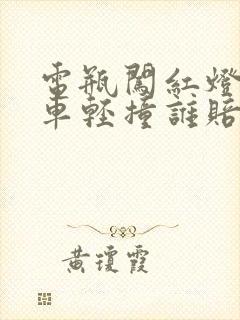 電瓶闖紅燈
車輕撞誰賠
黄瓊霞